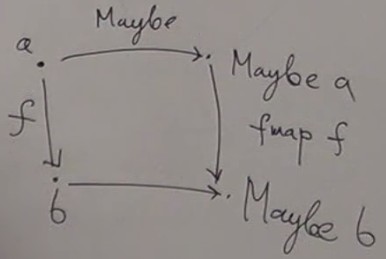 Maybe
a
Maybe a
f
fmap f
b
Maybe b